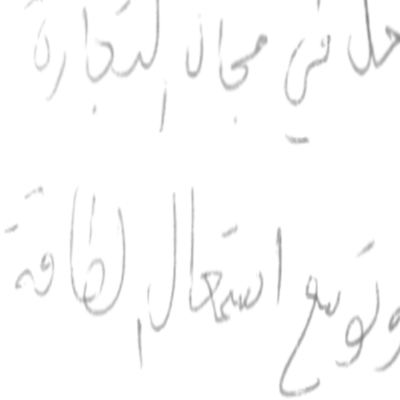 حل في مجال التجارة
وتوسع استعمال الطاقة